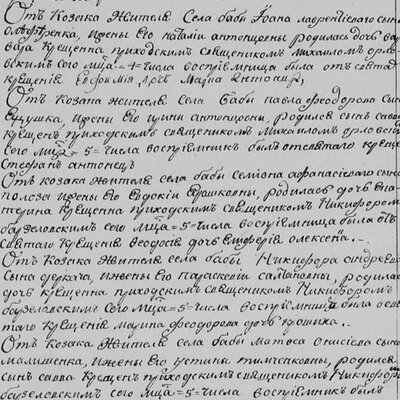 Отъ козака жителя села бабы Iоана лаврентiевого сына
и жены его наталiи антоновны родилась дочъ вар
вара крещенна приходскимъ священникомъ михаиломъ орло
вскимъ сего м̃ца = 4 = числа воспрiемница была отъ святаго
крещенiя
Отъ козака жителя села бабы павла феодорова сына
и жены его родился сынъ савва
крещенъ приходскимъ священникомъ михаиломъ орловскимъ
сего м̃ца = 5 = числа воспрiемникъ былъ отъ святаго крещенiя
стефанъ антонецъ
Отъ козака жителя села бабы семiона афанасiевого сына
полоза и жены его евдокiи ершковны, родилась дочъ ека
терина крещенна приходскимъ священникомъ Никифоромъ
базелювскимъ сего м̃ца = 5 = числа воспрiемница была отъ
святаго крещенiя феодосiя дочъ олексена.
Отъ козака жителя села бабы Никифора андрeева
сына деркача, и жены его параскевiи, родилась
дочъ крещенна приходскимъ священникомъ Никифоромъ
базелювскимъ сего м̃ца = 5 = числа воспрiемница была отъ свя
таго крещенiя марина феодорова дочъ
Отъ козака жителя села бабы матвеа онисiева сына
малышенка, и жены его устины, родился
сынъ савва крещенъ приходскимъ священникомъ Никифоромъ
базелювскимъ сего м̃ца = 5 = числа воспрiемникъ былъ